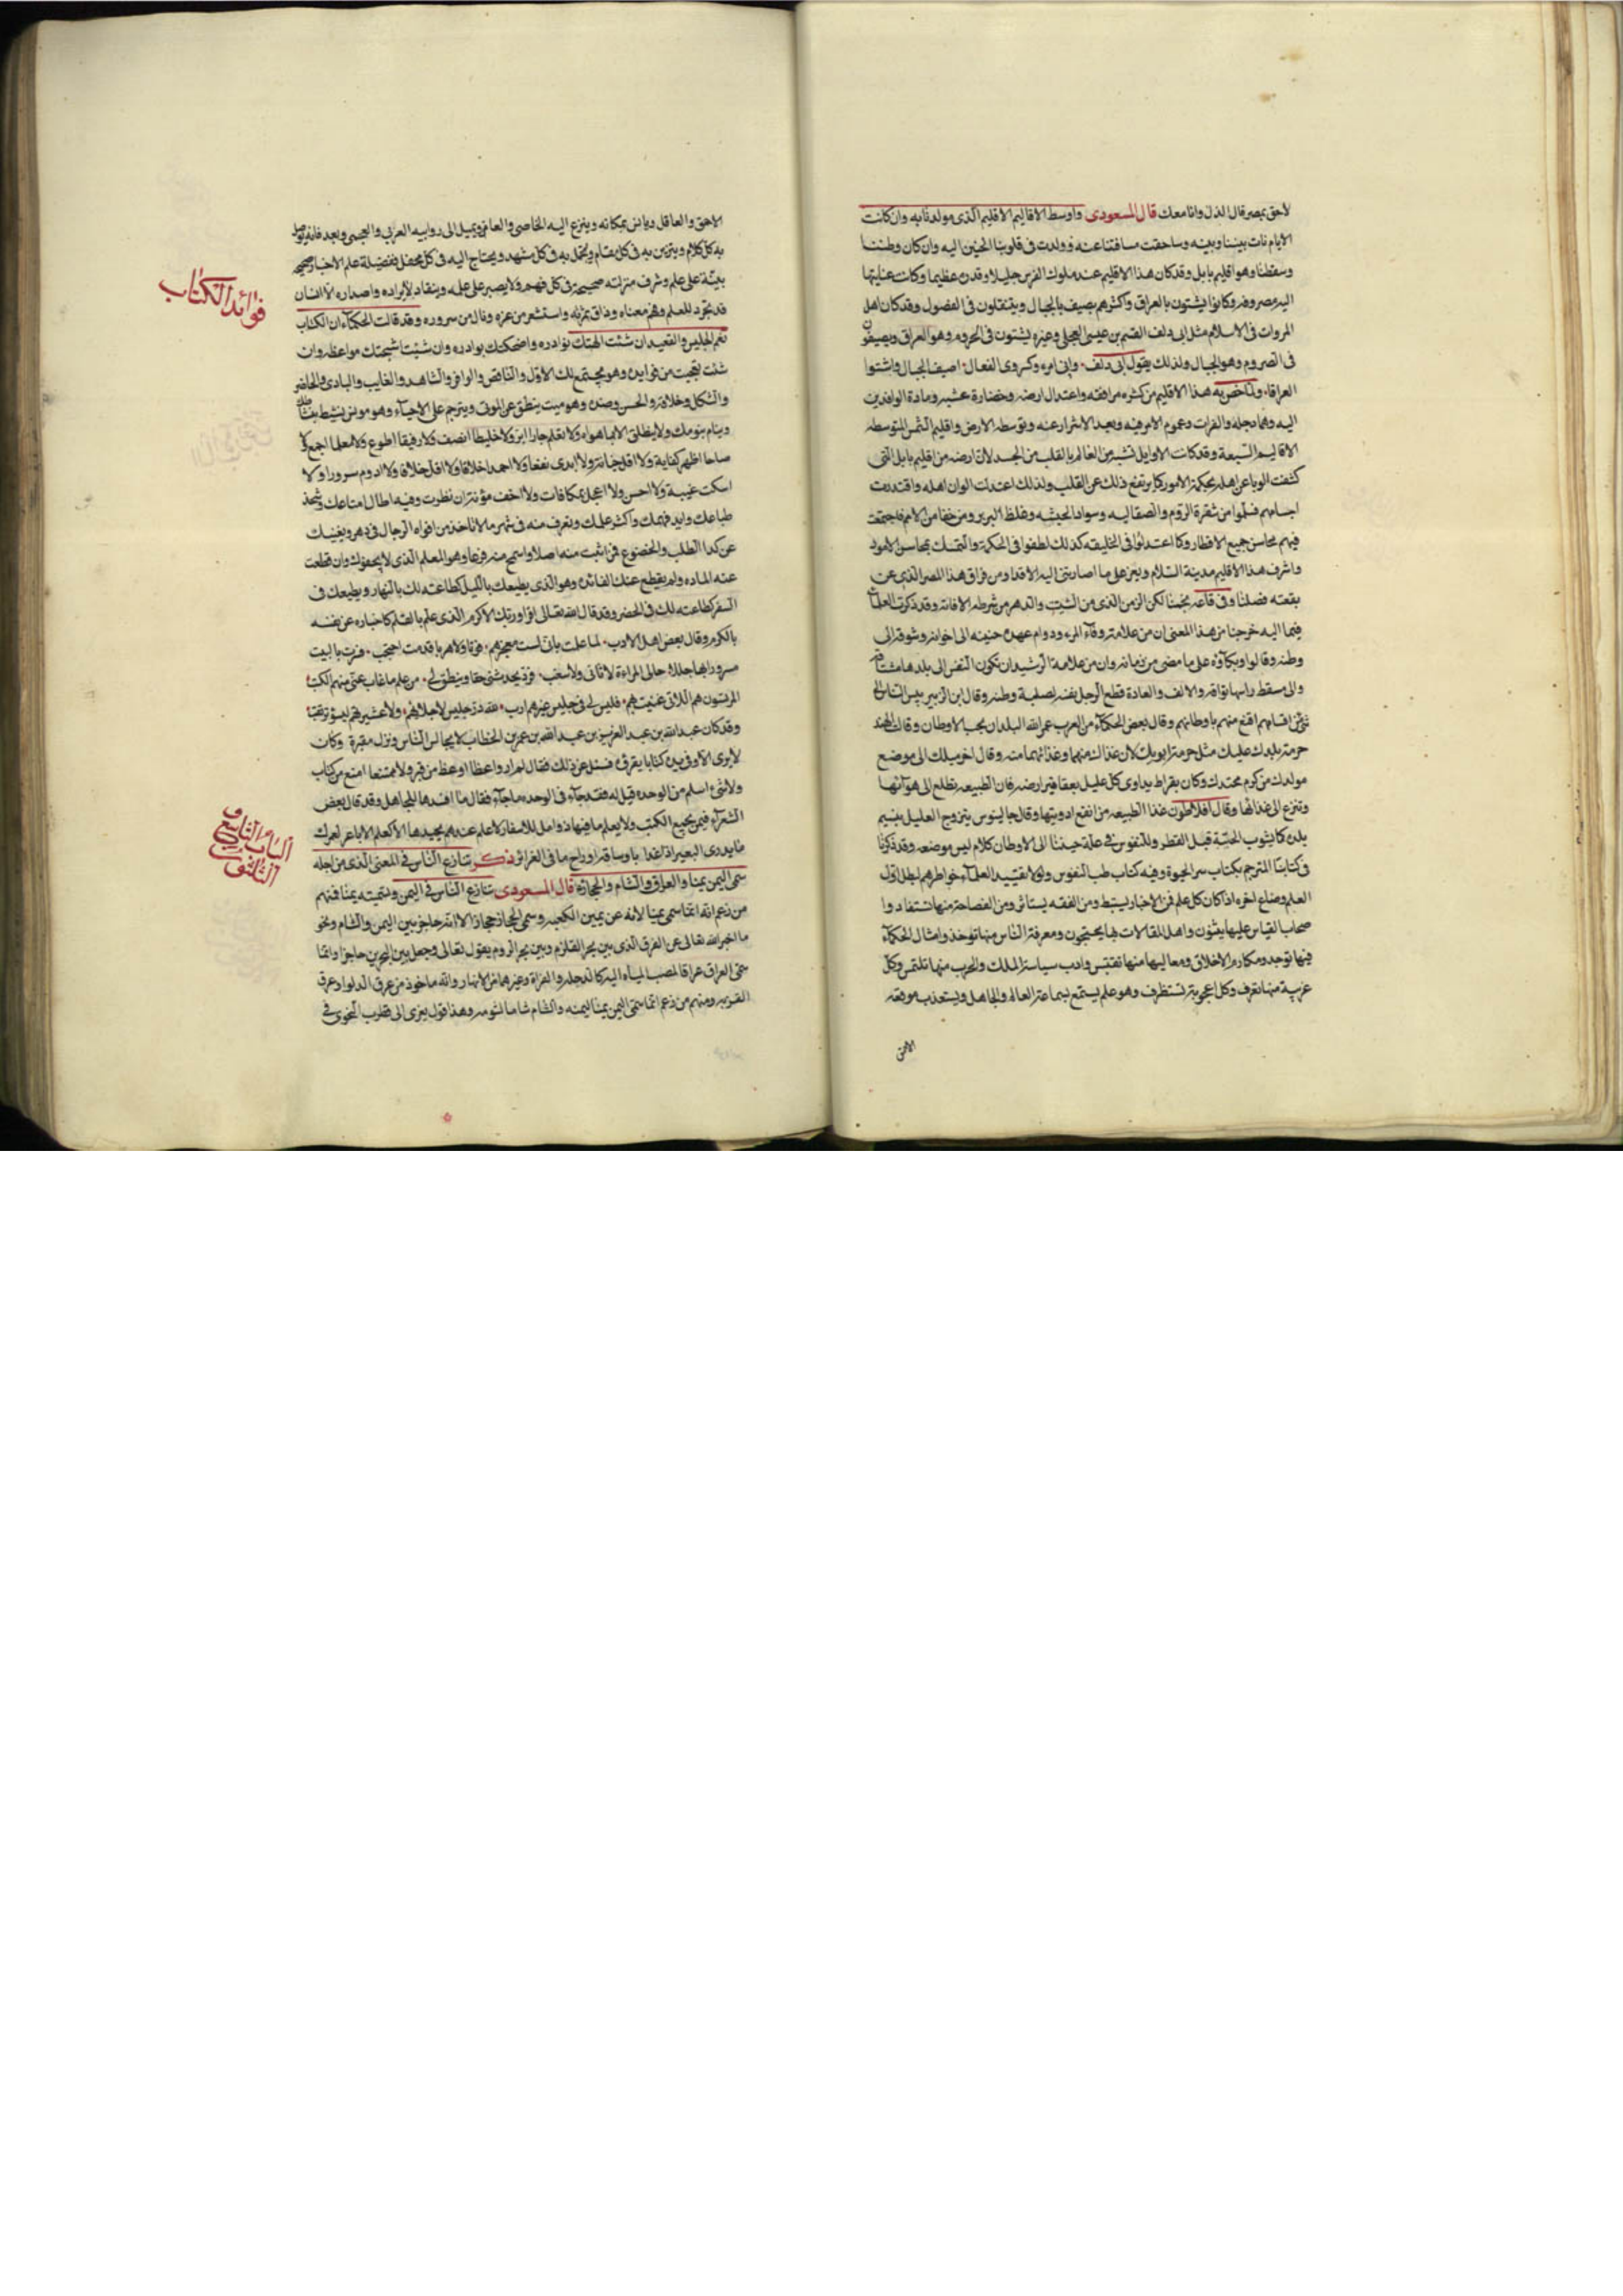 لاحق بمصر قال الذل وانا معك قال المسعودى واوسط الاقاليم الاقليم الذى مولدنا به وان كانت
الايام نات بيننا وبينه وساحقت مسافتنا عنه وولدت فى قلوبنا الحنين اليه وان كان وطننا
ومسقطنا وهو اقليم بابل وقد كان هذا الاقليم عند ملوك الفرس جليلا وقدره عظيما وكانت عنايتها
اليه مصروفه وكانوا يشتون بالعراق واكثرهم يصيف بالجبال ويتنقلون فى الفصول وقد كان اهل
المروات فى الاسلام مثل ابى دلف القسم بن عيسى العجلى وغيره يشتون فى الحرومه وهو العراق ويصيفون
فى الصروم وهو الجبال ولذلك يقول ابى دلف وانى امرء وكسروى الفعال اصيف الجبال واشتوا
العراقا ولما خص به هذا الاقليم من كثره مرافقه واعتدال ارضه وخضارة عشبه ومادة الوافدين
اليه وهما دجله والفرات وعموم الامن فيه وبعد الاشرار عنه وتوسطه الارض واقليم الشمس المتوسطه
الاقاليم السبعة وقد كانت الاوايل تشبهه من العالم بالقلب من الجسد لان ارضه من اقليم بابل التى
كشفت الوبا عن اهله بحكمة الامور كما يرتفع ذلك عن القلب ولذلك اعتدلت الوان اهله واقتدرت
اجسامهم فسلموا من شقرة الروم والصقالبه وسواد الحبشه وغلظ البربر ومن جفا من الامم فاجتمعت
فيهم محاسن جميع الاقطار وكما اعتدلوا فى الخليقه كذلك لطفوا فى الحكمة والتمسك بمحاسن الامور
واشرف هذا الاقليم مدينة السلام ويعز على ما اصارتنى اليه الاقدار من فراق هذا المصر الذى عن
بقعته فصلنا وفى قاعه نجمنا لكن الزمن الذى من الشتيت والدهر من شرطه الافاته وقد ذكرت العلماء
فيما اليه خرجنا من هذا المعنى ان من علامة وفاء المرء ودوام عهده حنينه الى اخوانه وشوقه الى
وطنه وقالوا وبكاؤه على ما مضى من زمانه وان من علامة الرشيد ان تكون النفس الى بلدها مشتاقه
والى مسقط راسها تواقه والالف والعادة قطع الرجل نفسه لصلة وطنه وقال ابن الزبير ليس الناس الى
شئ من اقسامهم اقنع منهم باوطانهم وقال بعض الحكماء من العرب عمر الله البلدان بحب الاوطان وقالت الهند
حرمة بلدك عليك مثل حرمة ابويك لان غذاك منهما وغذائهما منه وقال اخر ميلك الى موضع
مولدك من كرم محتدك وكان بقراط يداوى كل عليل بعقاقير ارضه فان الطبيعه تطلع الى هوائها
وتنزع الى غذائها وقال افلاطون غذا الطبيعه من انفع ادويتها وقال جالينوس يتروح العليل بنسيم
بلده كما يثوب الحبة قبل القطر وللنفوس فى علة حنيننا الى الاوطان كلام ليس موضعه وقد ذكرنا
فى كتابنا المترجم بكتاب سر الحيوة وفيه كتاب طب النفوس ولولا تقييد العلماء خواطرهم لبطل اول
العلم وضاع اخره اذا كان كل علم فمن الاخبار يستنبط ومن الفقه يستاثر ومن الفصاحة منها تستفاد وا
صحاب القياس عليها يبنون واهل المقالات بها يحتجون ومعرفة الناس منها توخذ وامثال الحكماء
فيها توجد ومكارم الاخلاق ومعاليها منها تقتبس وادب سياسة الملك والحرب منها تلتمس وكل
غريبة منها تعرف وكل اعجوبة تستظرف وهو علم يستمتع بسماعه العالم والجاهل ويستعذب موقعه
الاحمق
الاحمق والعاقل ويانس بمكانه وينزع اليه الخاصى والعامى ويميل الى روايه العربى والعجمى وبعد فانه يوصل
به كل كلام ويتزين به فى كل مقام ويتجمل به فى كل مشهد ويحتاج اليه فى كل محفل ففضيلة علم الاخبار صحيحه
بينة على علم وشرف منزلته صحيحة فى كل فهم ولا يصبر على علمه وينقاد لايراده واصداره الا انسان
قد تجرد للعلم وفهم معناه وذاق ثمرته واستشعر من عزه ونال من سروره وقد قالت الحكماء ان الكتاب
فوائد الكتاب
نعم الجليس والقعيد ان شئت الهتك نوادره واضحكتك بوادره وان شئت اشجتك مواعظه وان
شئت تعجبت من فوايده وهو يجمع لك الاول والناقص والوافى والشاهد والغايب والبادى والحاضر
والشكل وخلافه والحسن وضده وهو ميت ينطق عن الموتى ويترجم على الاحياء وهو مونس ينشط بنشاطك
وينام بنومك ولا ينطلق الا بما هواه ولا نعلم جارا ابر ولا خليطا انصف ولا رفيقا اطوع ولا معلما اجمع ولا
صاحبا اظهر كفاية ولا اقل خيانة ولا ابدى نفعا ولا احمد اخلاقا ولا اقل خلافا ولا ادوم سرورا ولا
اسكت غيبة ولا احسن ولا اعجل مكافات ولا اخف مؤنة ان نظرت وفيه اطال امتاعك وشحذ
طباعك وايد فهمك واكثر علمك وتعرف منه فى شهر ما لا تاخذ من افواه الرجال فى دهر ويغنيك
عن كدا الطلب والخضوع فمن اثبت منه اصلا واسمح منه فرعا وهو المعلم الذى لا يجفوك وان قطعت
عنه الماده ولم يقطع عنك الفائده وهو الذى يطيعك بالليل كطاعته لك بالنهار ويطيعك فى
السفر كطاعته لك فى الحضر وقد قال الله تعالى اقرا وربك الاكرم الذى علم بالقلم كاخباره عن نفسه
بالكرم وقال بعض اهل الادب لما علمت بانى لست معجزهم فوتا ولا هربا قدمت احتجب فصرت بالبيت
مسرورا بها جذلا حالى المراءة لا ثانى ولا شغب فرد يحدثنى حقا وينطق لى من علم ما غاب عنى منهم الكتب
المونسون هم اللاتى عنيت بهم فليس لى فى جليس غيرهم ارب لله در جليس لا جلادهم ولا عشيرهم للسوء ترتقبا
وقد كان عبد الله بن عبد العزيز بن عبد الله بن عمر بن الخطاب لا يجالس الناس ونزل مقبرة وكان
لا يرى الا وفى يده كتابا يقرؤه فسئل عن ذلك فقال لم ار واعظا اوعظ من قبر ولا ممتعا امتع من كتاب
ولا شئ اسلم من الوحده قيل له فقد جاء فى الوحده ما جاء فقال ما افسدها للجاهل وقد قال بعض
الشعراء فيمن يجمع الكتب ولا يعلم ما فيها ذوامل للاسفار لا علم عندهم بجيدها الا كعلم الاباعر لعمرك
ما يدرى البعير اذا غدا باوساقه او راح ما فى الغرائر ذكر تنازع الناس فى المعنى الذى من اجله
الباب التاسع و
الثلثون
سمى اليمن يمنا والعراق والشام والحجاز قال المسعودى تنازع الناس فى اليمن وتسميته يمنا فمنهم
من زعم انه انما سمى يمنا لانه عن يمين الكعبه وسمى الحجاز حجازا لانه حاجز بين اليمن والشام ونحو
ما اخبر الله تعالى عن الفرق الذى بين بحر القلزم وبين بحر الروم بقول تعالى وجعل بين البحرين حاجزا وانما
سمى العراق عراقا لمصب المياه اليه كالدجله والفراة وغيرهما من الانهار وانه ماخوذ من عرق الدلو او عرق
القربه ومنهم من زعم انما سمى اليمن يمنا ليمنه والشام شاما لشومه وهذا قول يعزى الى قطرب النحوى فى